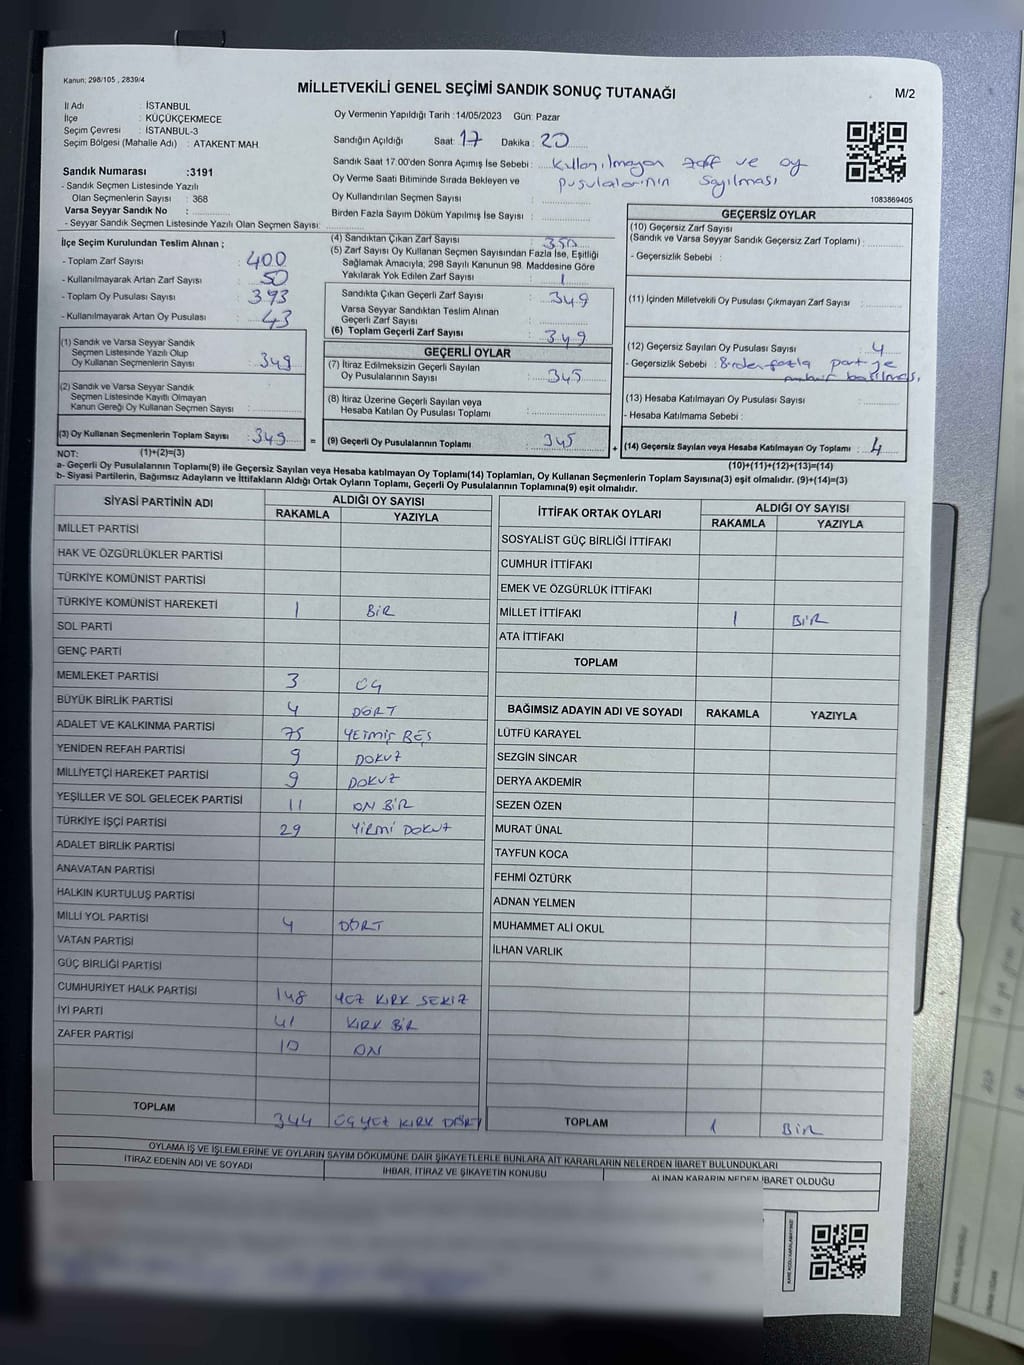 Kanun; 298/105 , 2839/4
MİLLETVEKİLİ GENEL SEÇİMİ SANDIK SONUÇ TUTANAĞI
M/2
İl Adı : İSTANBUL
İlçe : KÜÇÜKÇEKMECE
Seçim Çevresi : İSTANBUL-3
Seçim Bölgesi (Mahalle Adı) : ATAKENT MAH
Oy Vermenin Yapıldığı Tarih :14/05/2023 Gün: Pazar
Sandığın Açıldığı Saat: 17 Dakika : 20
Sandık Saat 17.00'den Sonra Açılmış İse Sebebi : Kullanılmayan zarf ve oy
pusulalarının sayılması
Oy Verme Saati Bitiminde Sırada Bekleyen ve
Oy Kullandırılan Seçmen Sayısı :
Birden Fazla Sayım Döküm Yapılmış İse Sayısı :
1083869405
Sandık Numarası :3191
- Sandık Seçmen Listesinde Yazılı
Olan Seçmenlerin Sayısı : 368
Varsa Seyyar Sandık No :
- Seyyar Sandık Seçmen Listesinde Yazılı Olan Seçmen Sayısı:
İlçe Seçim Kurulundan Teslim Alınan ;
- Toplam Zarf Sayısı : 400
- Kullanılmayarak Artan Zarf Sayısı : 50
- Toplam Oy Pusulası Sayısı : 393
- Kullanılmayarak Artan Oy Pusulası : 43
(1) Sandık ve Varsa Seyyar Sandık
Seçmen Listesinde Yazılı Olup
Oy Kullanan Seçmenlerin Sayısı : 349
(2) Sandık ve Varsa Seyyar Sandık
Seçmen Listesinde Kayıtlı Olmayan
Kanun Gereği Oy Kullanan Seçmen Sayısı :
(3) Oy Kullanan Seçmenlerin Toplam Sayısı : 349 =
(4) Sandıktan Çıkan Zarf Sayısı : 350
(5) Zarf Sayısı Oy Kullanan Seçmen Sayısından Fazla İse, Eşitliği
Sağlamak Amacıyla, 298 Sayılı Kanunun 98. Maddesine Göre
Yakılarak Yok Edilen Zarf Sayısı : 1
Sandıkta Çıkan Geçerli Zarf Sayısı : 349
Varsa Seyyar Sandıktan Teslim Alınan
Geçerli Zarf Sayısı :
(6) Toplam Geçerli Zarf Sayısı : 349
GEÇERLİ OYLAR
(7) İtiraz Edilmeksizin Geçerli Sayılan
Oy Pusulalarının Sayısı : 345
(8) İtiraz Üzerine Geçerli Sayılan veya
Hesaba Katılan Oy Pusulası Toplamı :
(9) Geçerli Oy Pusulalarının Toplamı : 345 +
GEÇERSİZ OYLAR
(10) Geçersiz Zarf Sayısı
(Sandık ve Varsa Seyyar Sandık Geçersiz Zarf Toplamı) :
- Geçersizlik Sebebi :
(11) İçinden Milletvekili Oy Pusulası Çıkmayan Zarf Sayısı :
(12) Geçersiz Sayılan Oy Pusulası Sayısı : 4
- Geçersizlik Sebebi : Birden fazla partiye
mühür basılması.
(13) Hesaba Katılmayan Oy Pusulası Sayısı :
- Hesaba Katılmama Sebebi :
(14) Geçersiz Sayılan veya Hesaba Katılmayan Oy Toplamı : 4
NOT: (1)+(2)=(3) (10)+(11)+(12)+(13)=(14)
a- Geçerli Oy Pusulalarının Toplamı(9) ile Geçersiz Sayılan veya Hesaba katılmayan Oy Toplamı(14) Toplamları, Oy Kullanan Seçmenlerin Toplam Sayısına(3) eşit olmalıdır. (9)+(14)=(3)
b- Siyasi Partilerin, Bağımsız Adayların ve İttifakların Aldığı Ortak Oyların Toplamı, Geçerli Oy Pusulalarının Toplamına(9) eşit olmalıdır.
SİYASİ PARTİNİN ADI ALDIĞI OY SAYISI
RAKAMLA YAZIYLA
MİLLET PARTİSİ
HAK VE ÖZGÜRLÜKLER PARTİSİ
TÜRKİYE KOMÜNİST PARTİSİ
TÜRKİYE KOMÜNİST HAREKETİ 1 BİR
SOL PARTİ
GENÇ PARTİ
MEMLEKET PARTİSİ 3 ÜÇ
BÜYÜK BİRLİK PARTİSİ 4 DÖRT
ADALET VE KALKINMA PARTİSİ 75 YETMİŞ BEŞ
YENİDEN REFAH PARTİSİ 9 DOKUZ
MİLLİYETÇİ HAREKET PARTİSİ 9 DOKUZ
YEŞİLLER VE SOL GELECEK PARTİSİ 11 ON BİR
TÜRKİYE İŞÇİ PARTİSİ 29 YİRMİ DOKUZ
ADALET BİRLİK PARTİSİ
ANAVATAN PARTİSİ
HALKIN KURTULUŞ PARTİSİ
MİLLİ YOL PARTİSİ 4 DÖRT
VATAN PARTİSİ
GÜÇ BİRLİĞİ PARTİSİ
CUMHURİYET HALK PARTİSİ 148 YÜZ KIRK SEKİZ
İYİ PARTİ 41 KIRK BİR
ZAFER PARTİSİ 10 ON
TOPLAM 344 ÜÇYÜZ KIRK DÖRT
İTTİFAK ORTAK OYLARI ALDIĞI OY SAYISI
RAKAMLA YAZIYLA
SOSYALİST GÜÇ BİRLİĞİ İTTİFAKI
CUMHUR İTTİFAKI
EMEK VE ÖZGÜRLÜK İTTİFAKI
MİLLET İTTİFAKI 1 BİR
ATA İTTİFAKI
TOPLAM
BAĞIMSIZ ADAYIN ADI VE SOYADI RAKAMLA YAZIYLA
LÜTFÜ KARAYEL
SEZGİN SİNCAR
DERYA AKDEMİR
SEZEN ÖZEN
MURAT ÜNAL
TAYFUN KOCA
FEHMİ ÖZTÜRK
ADNAN YELMEN
MUHAMMET ALİ OKUL
İLHAN VARLIK
TOPLAM 1 BİR
OYLAMA İŞ VE İŞLEMLERİNE VE OYLARIN SAYIM DÖKÜMÜNE DAİR ŞİKAYETLERLE BUNLARA AİT KARARLARIN NELERDEN İBARET BULUNDUKLARI
İTİRAZ EDENİN ADI VE SOYADI İHBAR, İTİRAZ VE ŞİKAYETİN KONUSU ALINAN KARARIN NEDEN İBARET OLDUĞU